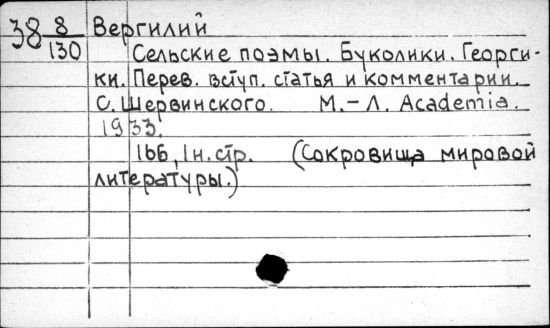 38 8/130 Вергилий
Сельские поэмы. Буколики. Георги-
ки. Перев. вступ. статья и комментарии.
С. Шервинского. М.-Л. Academia.
1933.
166, 1н. стр. (Сокровища мировой
литературы.)